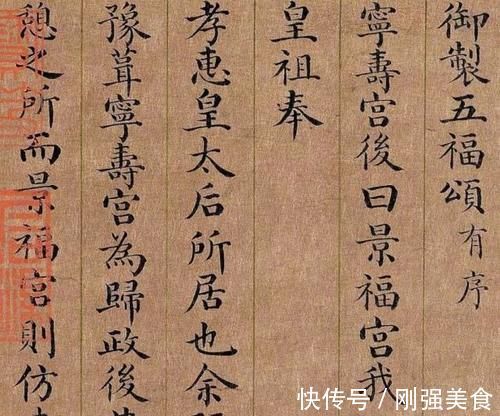 御製五福頌有序
寧壽宮後曰景福宮我
皇祖奉
孝惠皇太后所居也余
豫葺寧壽宮為歸政後
憩之所而景福宮則仿
快传号/刚强美食